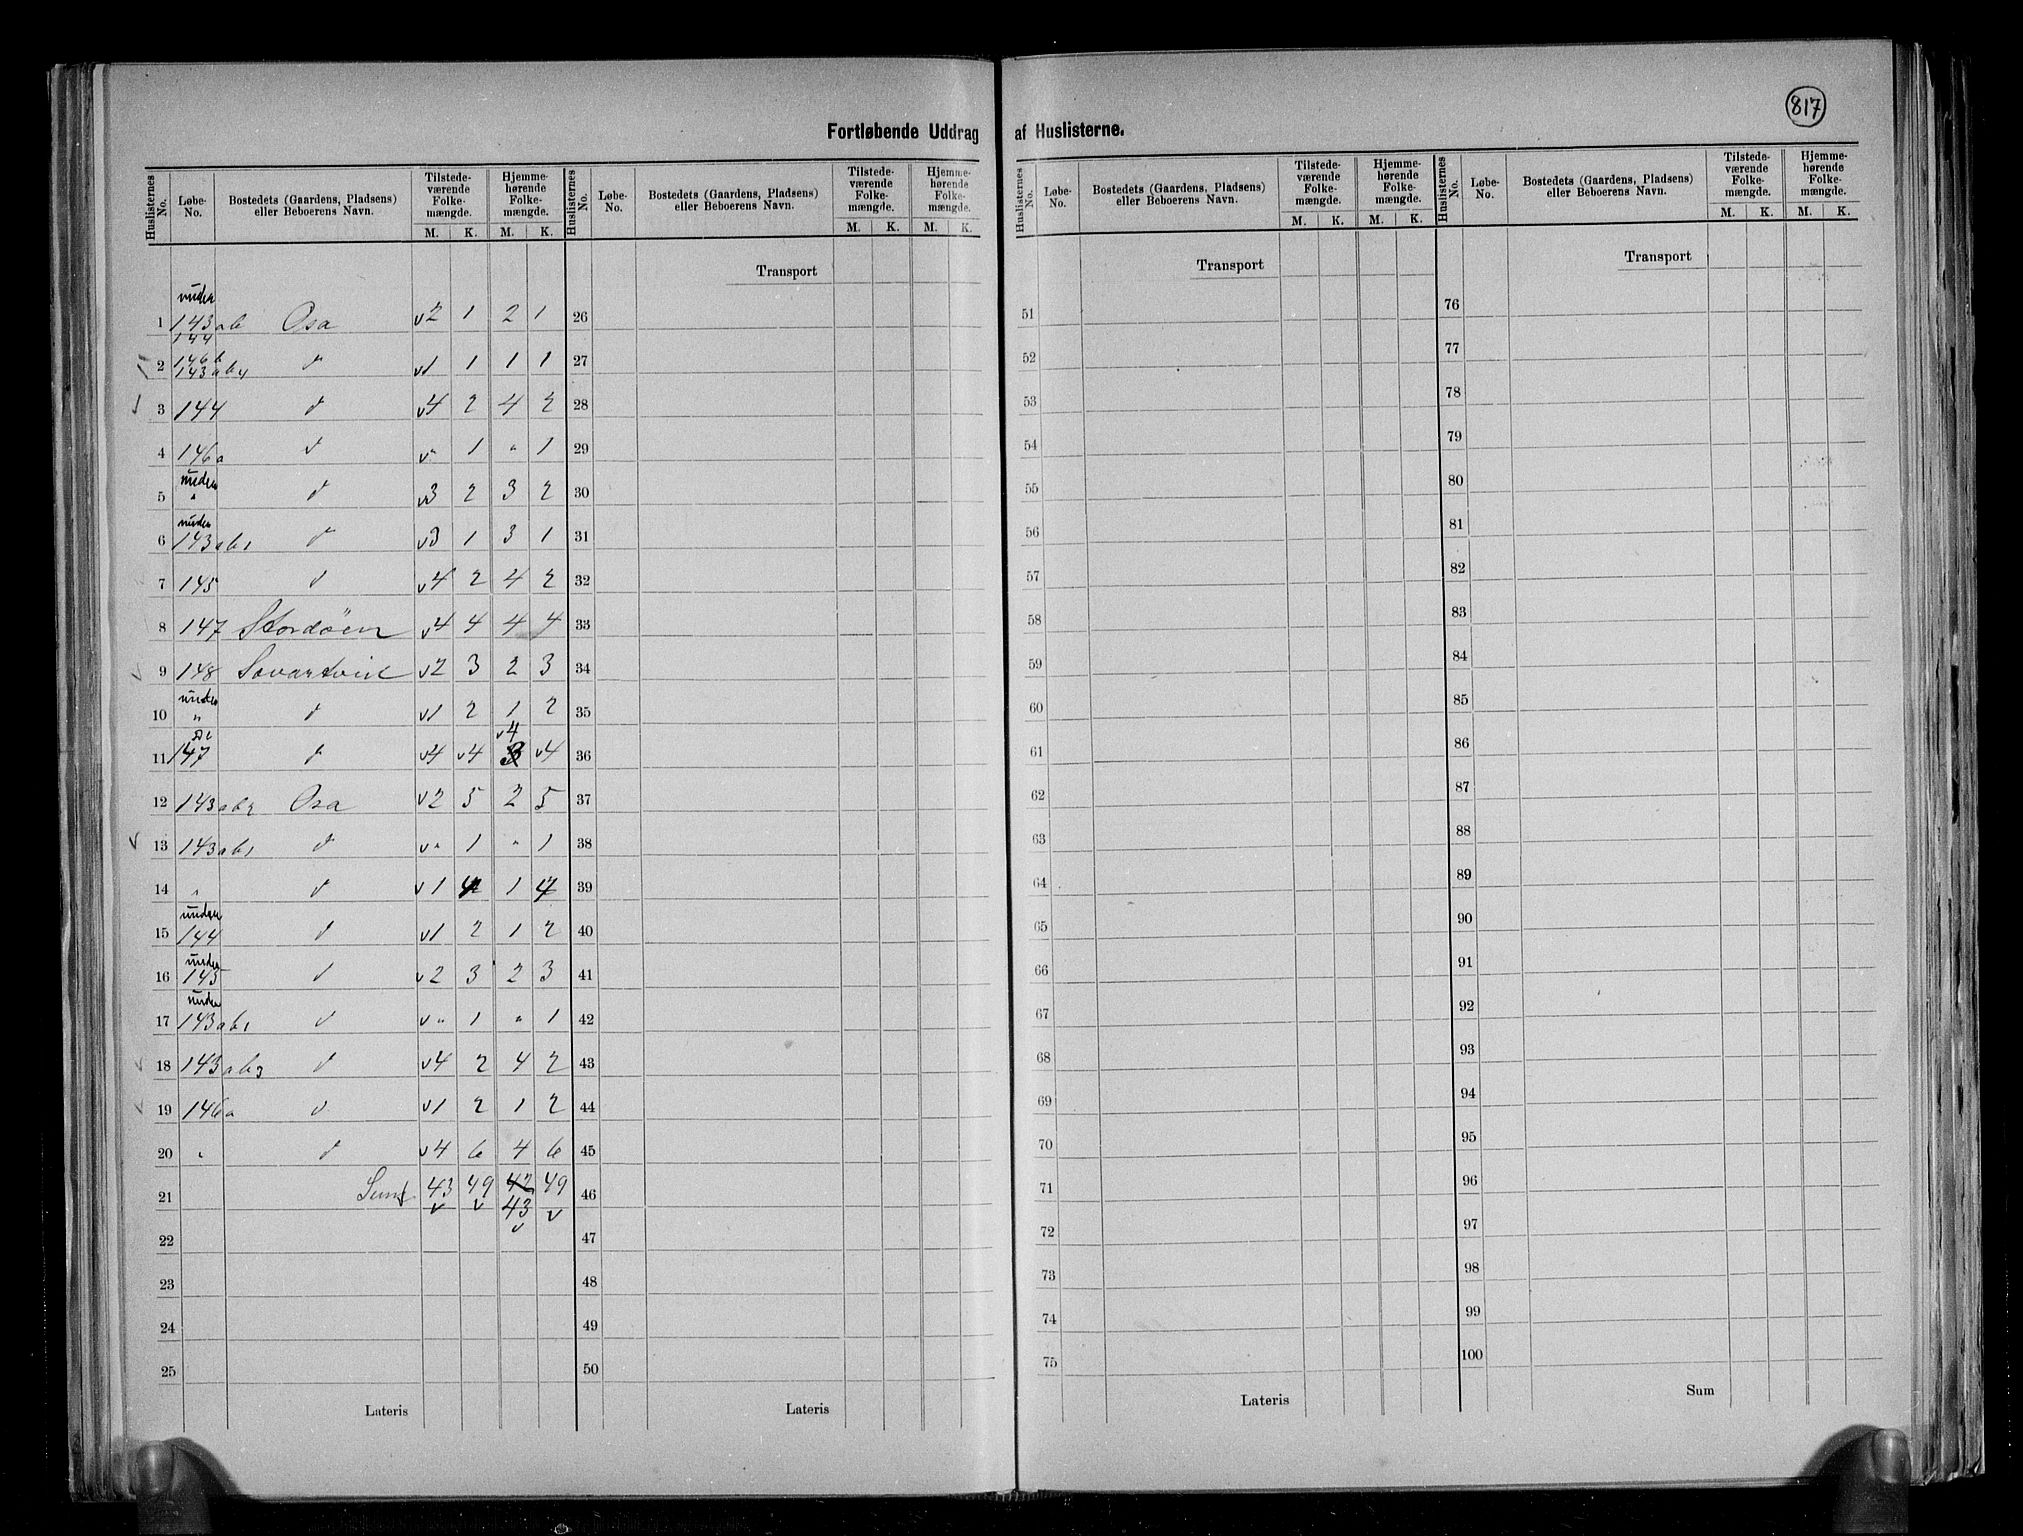 817
Fortløbende Uddrag af Huslisterne.
Huslisternes No. Løbe-No. Bostedets (Gaardens, Pladsens) eller Beboerens Navn. Tilstedeværende Folkemængde. M. K. Hjemmehørende Folkemængde. M. K.
Huslisternes No. Løbe-No. Bostedets (Gaardens, Pladsens) eller Beboerens Navn. Tilstedeværende Folkemængde. M. K. Hjemmehørende Folkemængde. M. K.
Huslisternes No. Løbe-No. Bostedets (Gaardens, Pladsens) eller Beboerens Navn. Tilstedeværende Folkemængde. M. K. Hjemmehørende Folkemængde. M. K.
Huslisternes No. Løbe-No. Bostedets (Gaardens, Pladsens) eller Beboerens Navn. Tilstedeværende Folkemængde. M. K. Hjemmehørende Folkemængde. M. K.
under
1 143ab Osa 2 1 2 1
144
146b
2 143ab4 d 1 1 1 1
3 144 d 4 2 4 2
4 146a d " 1 " 1
under
5 " d 3 2 3 2
under
6 143ab1 d 3 1 3 1
7 145 d 4 2 4 2
8 147 Stordöen 4 4 4 4
9 148 Savartveit 2 3 2 3
under
10 " d 1 2 1 2
4
11 147 d 4 4 3 4
12 143ab2 Osa 2 5 2 5
13 143ab1 d " 1 " 1
14 " d 1 4 1 4
under
15 144 d 1 2 1 2
under
16 145 d 2 3 2 3
under
17 143ab1 d " 1 " 1
18 143ab3 d 4 2 4 2
19 146a d 1 2 1 2
20 " d 4 6 4 6
21 Sum 43 49 42 49
43
22
23
24
25
Lateris
Transport
26
27
28
29
30
31
32
33
34
35
36
37
38
39
40
41
42
43
44
45
46
47
48
49
50
Lateris
Transport
51
52
53
54
55
56
57
58
59
60
61
62
63
64
65
66
67
68
69
70
71
72
73
74
75
Lateris
Transport
76
77
78
79
80
81
82
83
84
85
86
87
88
89
90
91
92
93
94
95
96
97
98
99
100
Sum